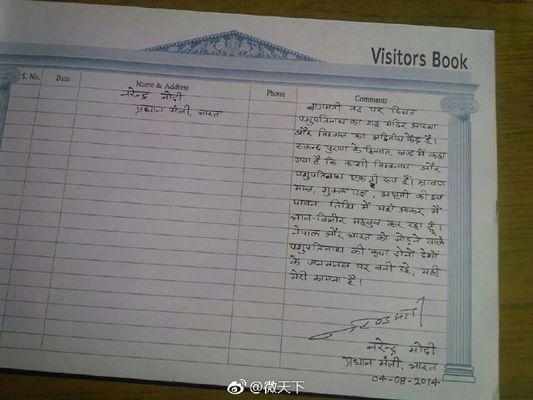 Visitors Book
S. No. Date Name & Address Phone Comments
नरेन्द्र मोदी
प्रधान मंत्री, भारत
बागमती तट पर स्थित
पशुपतिनाथ का यह मंदिर आस्था
और विश्वास का अद्वितीय केंद्र है।
स्कन्द पुराण के हिमवत खण्ड में कहा
गया है कि काशी विश्वनाथ और
पशुपतिनाथ एक ही रूप हैं। श्रावण
मास, शुक्ल पक्ष, अष्टमी की इस
पावन तिथि में यहाँ आकर मैं
भाव-विभोर महसूस कर रहा हूँ।
नेपाल और भारत को जोड़ने वाले
पशुपतिनाथ की कृपा दोनों देशों
के जनमानस पर बनी रहे, यही
मेरी कामना है।
नरेन्द्र मोदी
प्रधान मंत्री, भारत
04-08-2014
@微天下